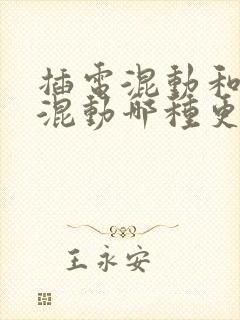 插電混動和
混動哪種更
王永安